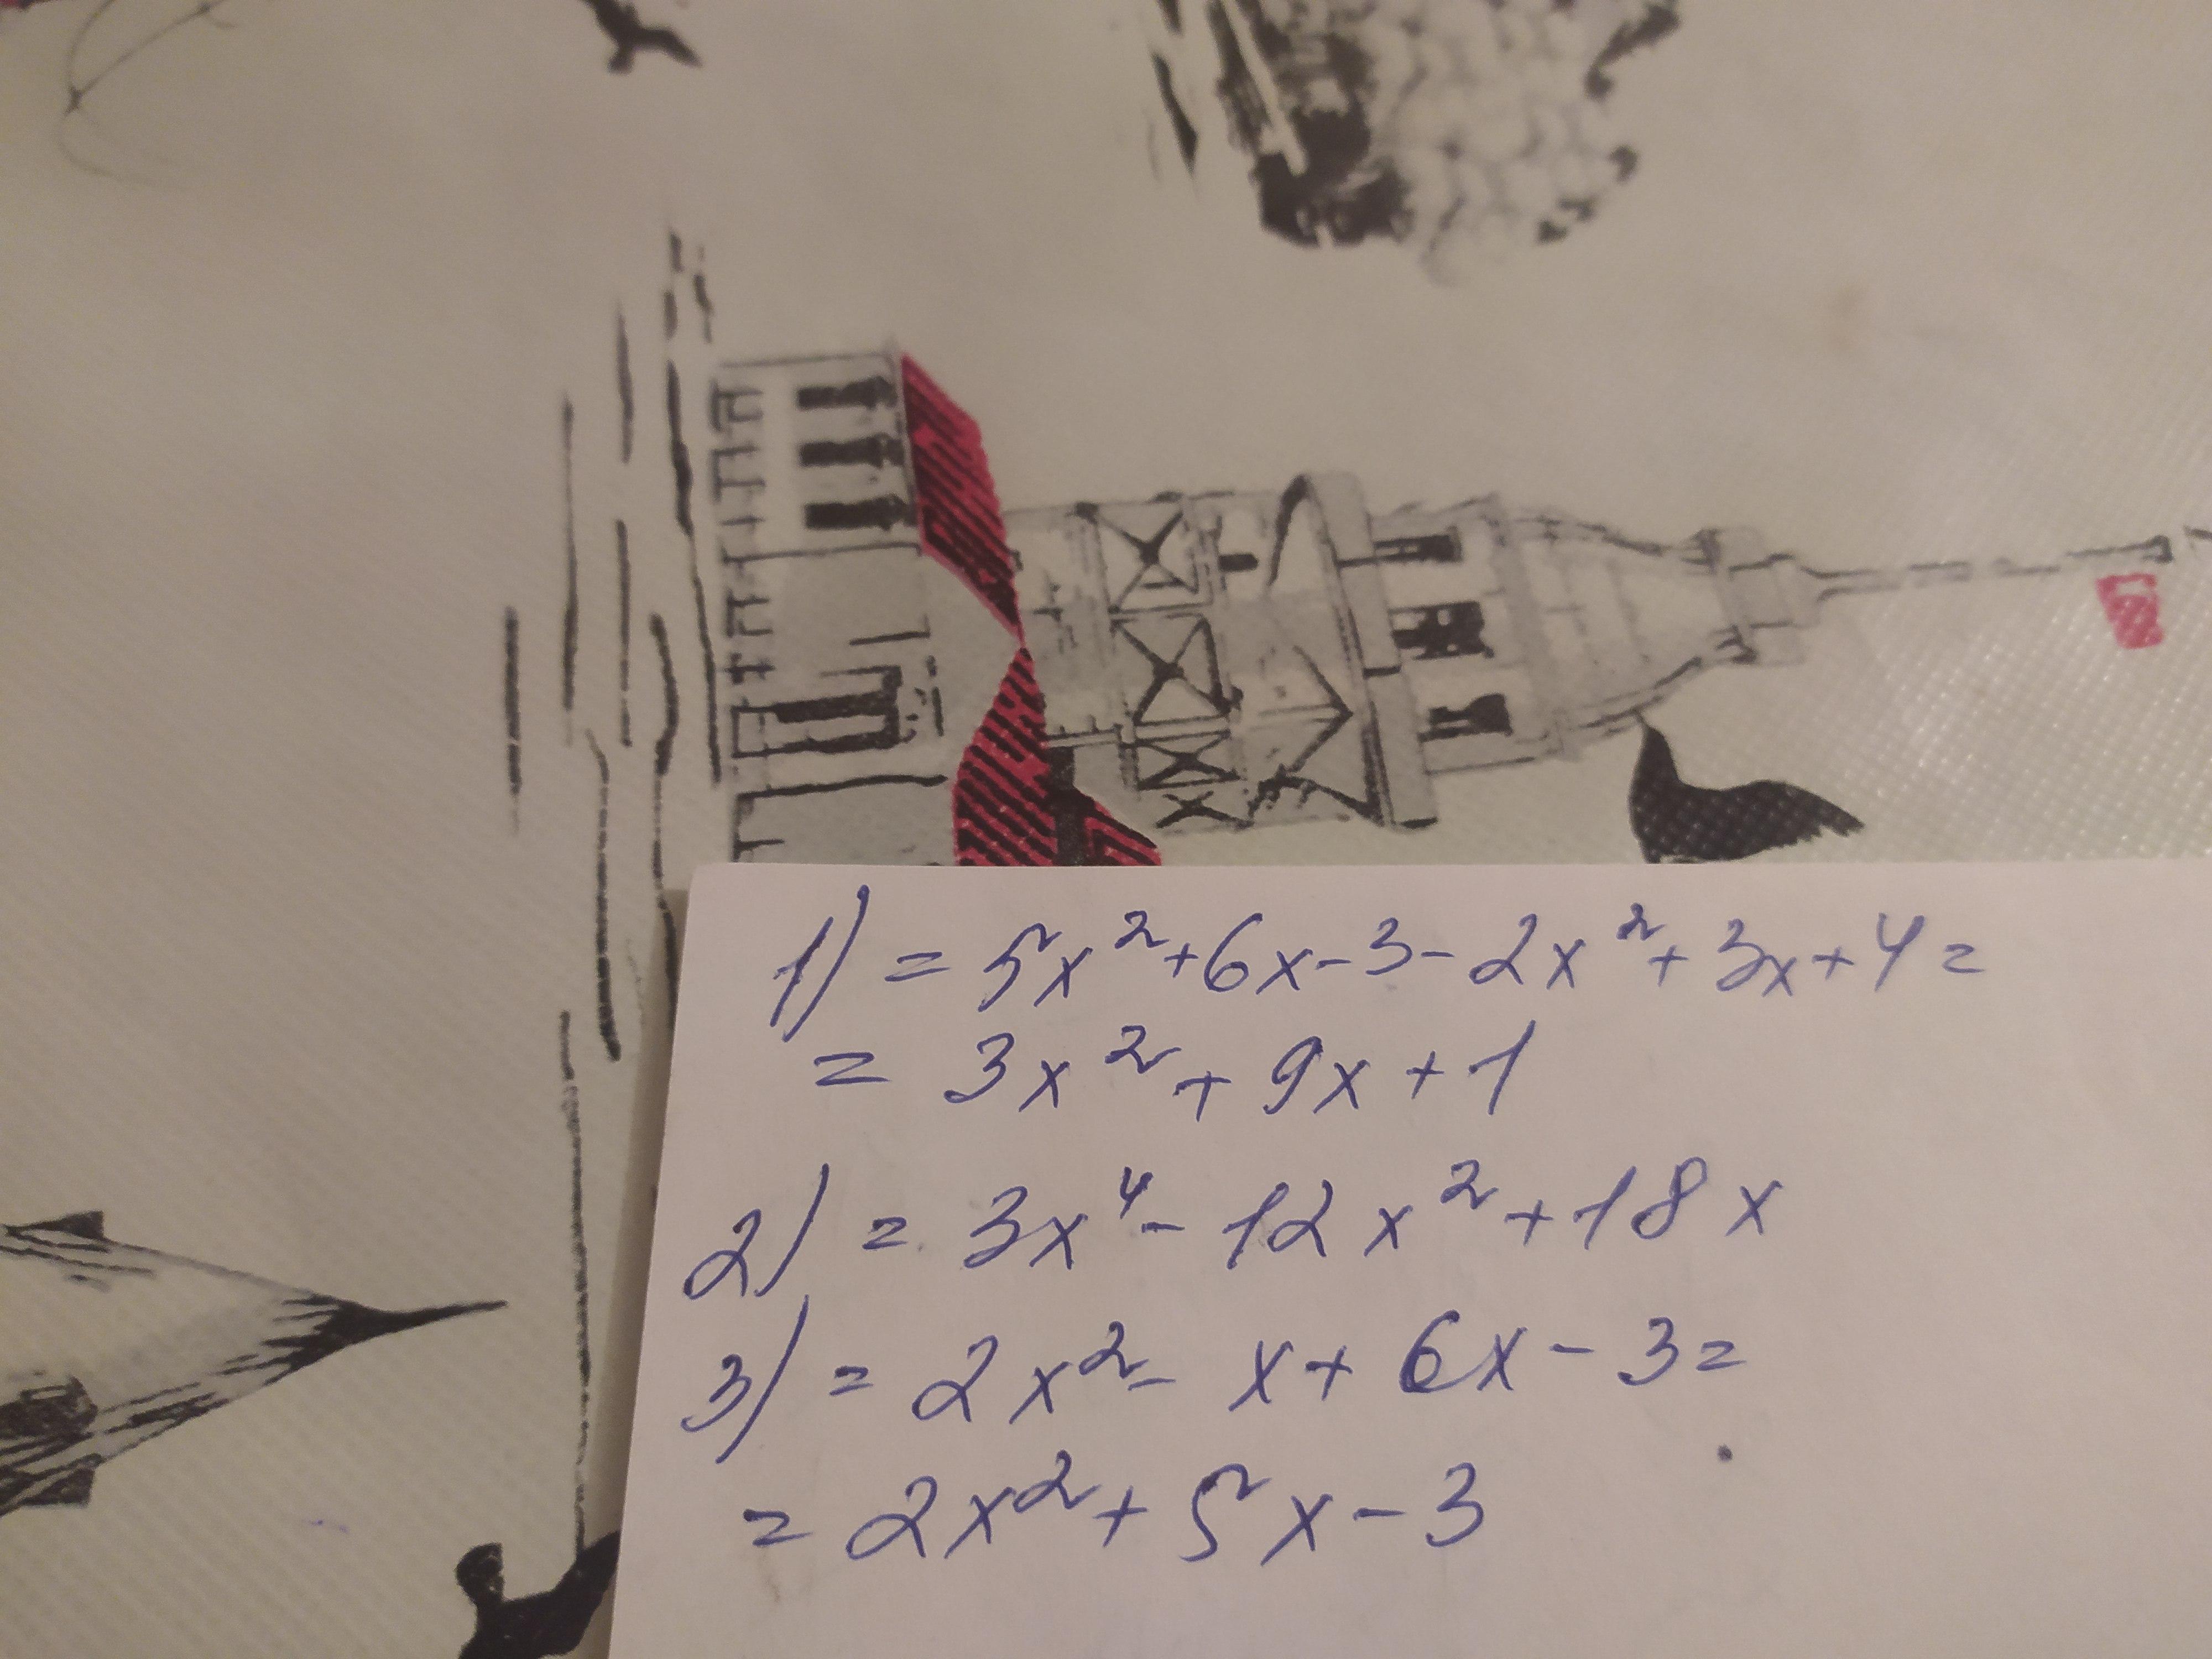 1) = 5x² + 6x - 3 - 2x² + 3x + 4 =
= 3x² + 9x + 1
2) = 3x⁴ - 12x² + 18x
3) = 2x² - x + 6x - 3 =
= 2x² + 5x - 3